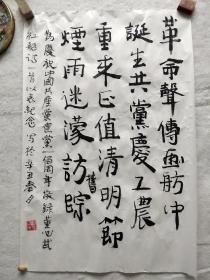 革命聲傳画舫中
誕生共黨慶工農
重来正值清明節
煙雨迷濛訪舊踪
為慶祝中國共産黨建黨一佰周年敬録董必武
紅船詩一首以表紀念 写於辛丑春月